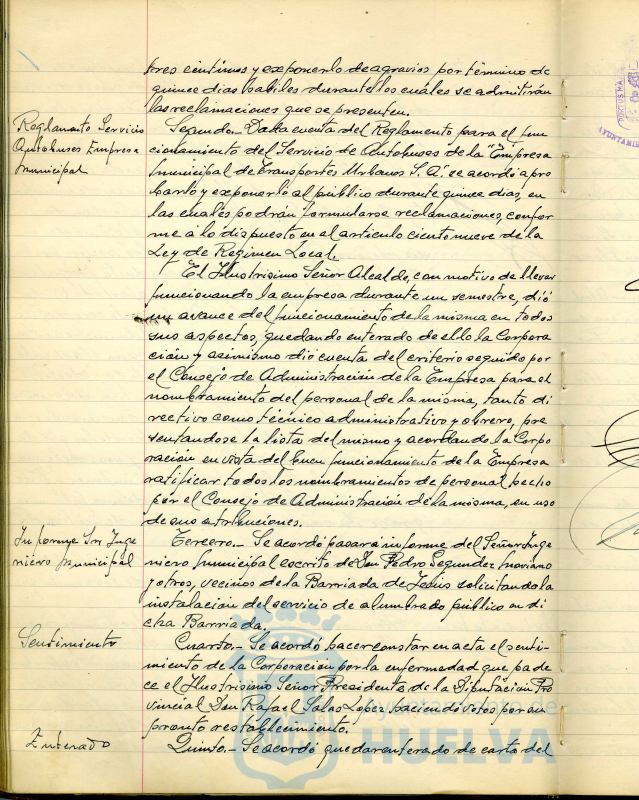 tres céntimos y exponerlo de agravios por término de
quince dias habiles durante los cuales se admitirán
las reclamaciones que se presenten.
Reglamento Servicio
Autobuses Empresa
Municipal
Segundo.- Dada cuenta del Reglamento para el fun
cionamiento del Servicio de Autobuses de la "Empresa
Municipal de Transportes Urbanos S.A." se acordó apro
barlo y exponerlo al público durante quince dias, en
las cuales podrán formularse reclamaciones, confor
me a lo dispuesto en el articulo ciento nueve de la
Ley de Regimen Local.
El Ilustrisimo Señor Alcalde, con motivo de llevar
funcionando la empresa durante un semestre, dió
un avance del funcionamiento de la misma en todos
sus aspectos, quedando enterado de ello la Corpora
ción y asimismo dió cuenta del criterio seguido por
el Consejo de Administración de la Empresa para el
nombramiento del personal de la misma, tanto di
rectivo como técnico administrativo y obrero, pre
sentandose la lista del mismo y acordando la Corpo
ración en vista del buen funcionamiento de la Empresa
ratificar todos los nombramientos de personal hecho
por el Consejo de Administración de la misma, en uso
de sus atribuciones.
Informe Sr. Inge
niero Municipal
Tercero.- Se acordó pasar a informe del Señor Inge
niero Municipal escrito de Don Pedro Segundez
y otros, vecinos de la Barriada de Jesús solicitando la
instalación del servicio de alumbrado público en di
cha Barriada.
Sentimiento
Cuarto.- Se acordó hacer constar en acta el senti-
miento de la Corporación por la enfermedad que pade
ce el Ilustrisimo Señor Presidente de la Diputación Pro
vincial Don Rafael Salas Lopez haciendo votos por un
pronto restablecimiento.
Enterado
Quinto.- Se acordó quedar enterado de carta del
Ayuntamiento de
HUELVA